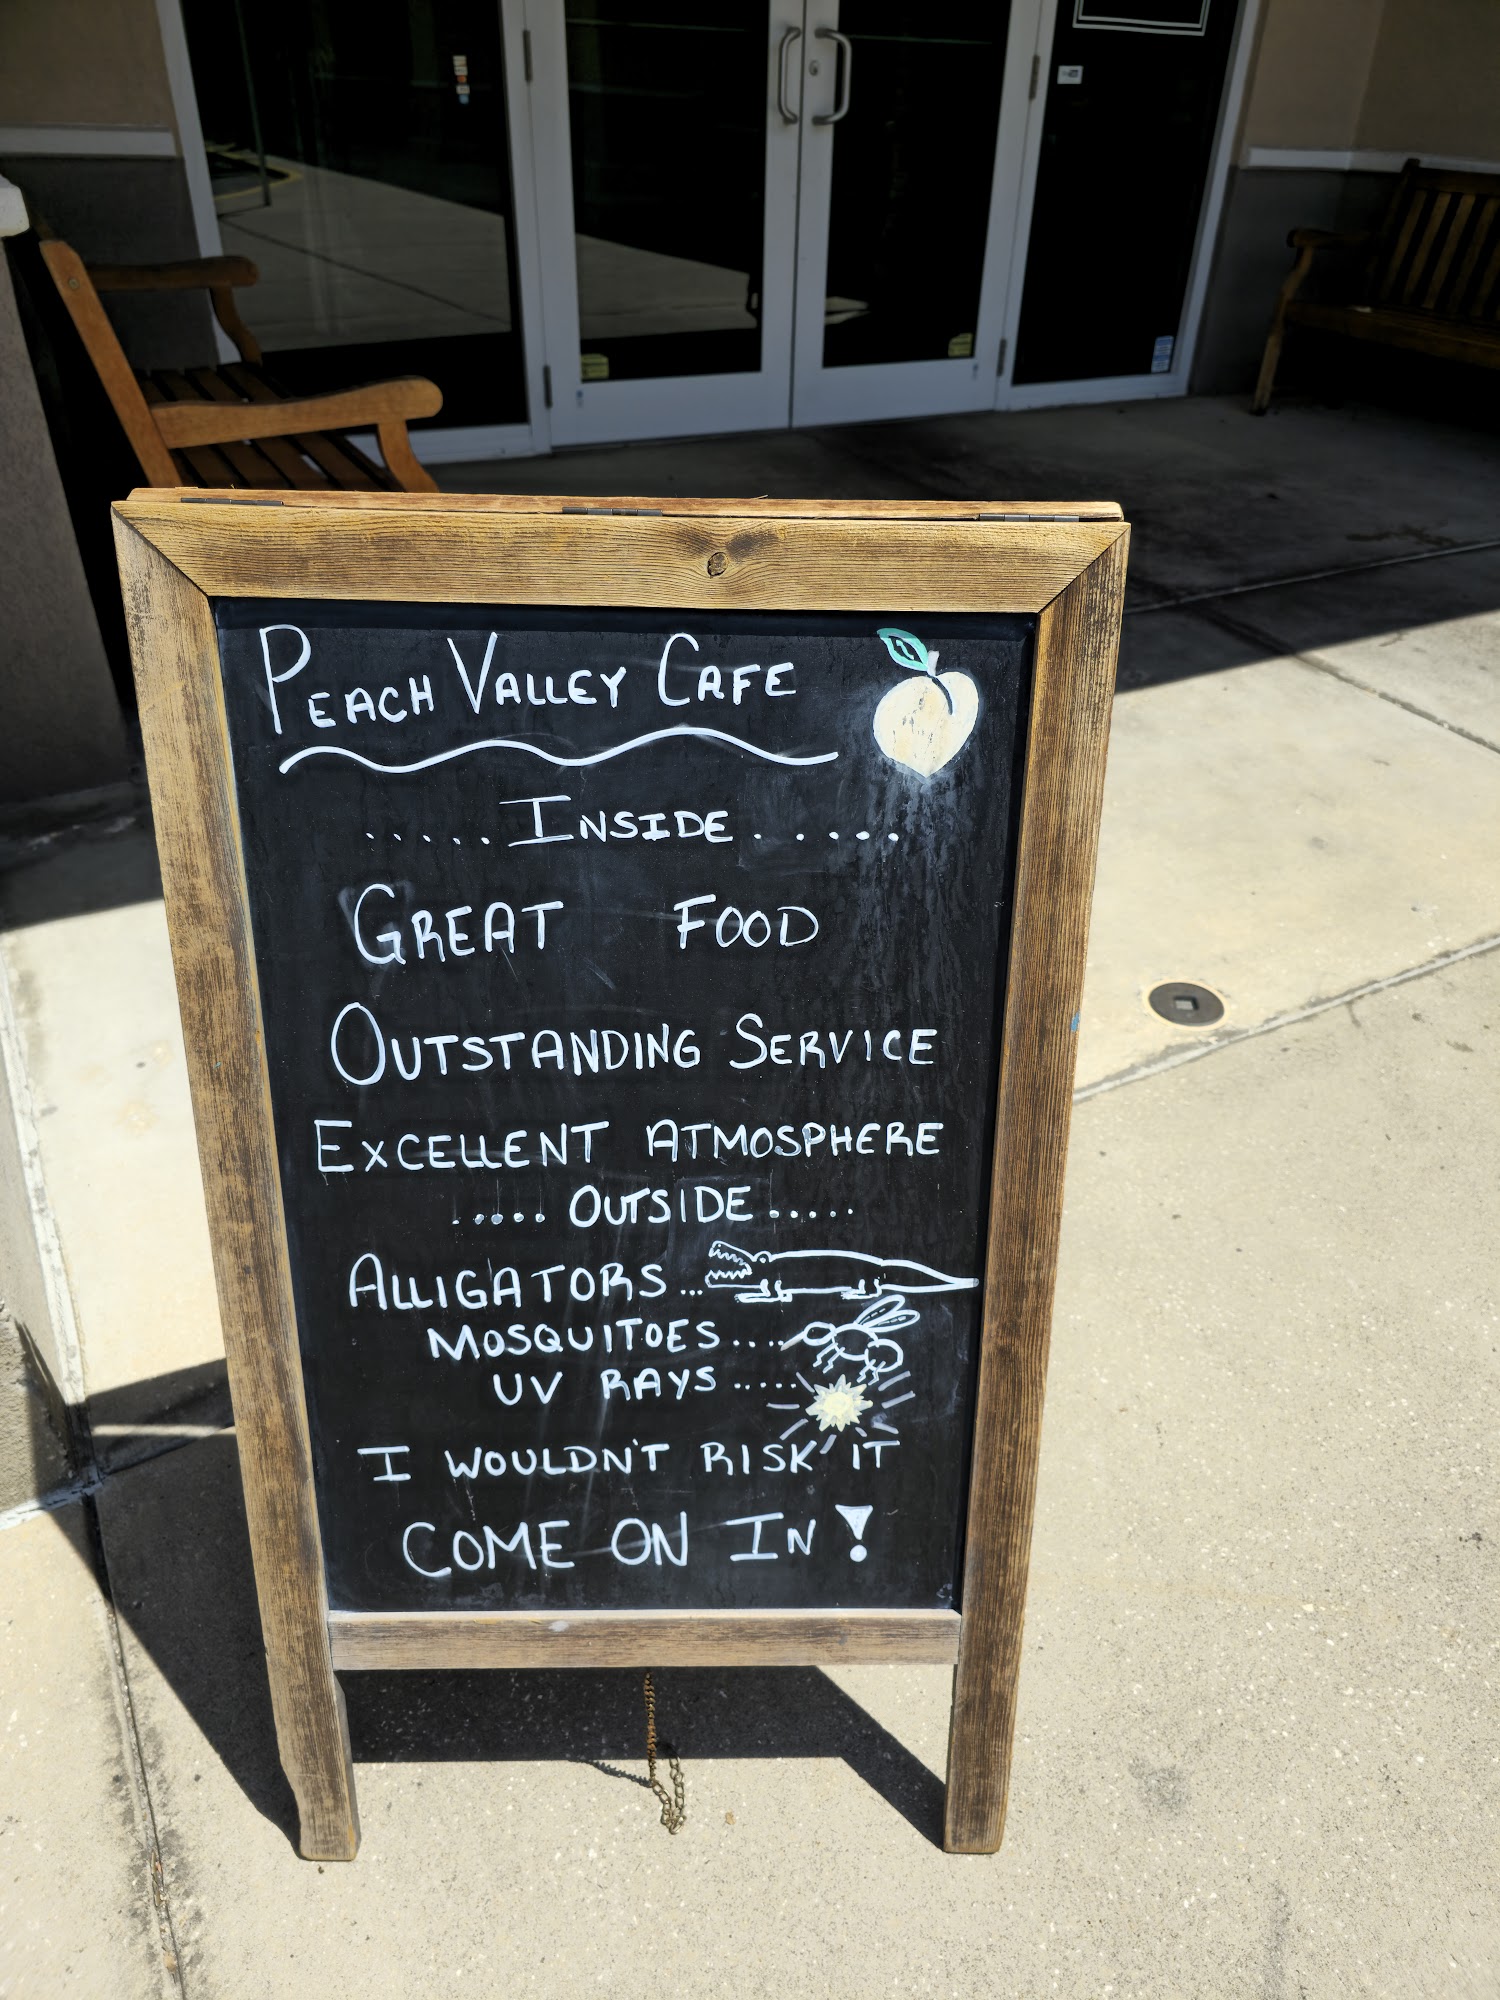 PEACH VALLEY CAFE
.....INSIDE......
GREAT FOOD
OUTSTANDING SERVICE
EXCELLENT ATMOSPHERE
.....OUTSIDE.....
ALLIGATORS...
MOSQUITOES....
UV RAYS.....
I WOULDN'T RISK IT
COME ON IN!